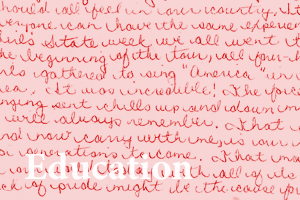 should all feel in our country. It
everyone can have the same experien
Girls State week we all went t
the beginning of the tour, all four-h
ls gathered to sing "America" in
ea. It was incredible! The forc
nging sent chills up and down m
will always remember. That
and now carry with me, is our
generations to come. That ma
our country with all of its
ck of pride might be the cause fo
Education